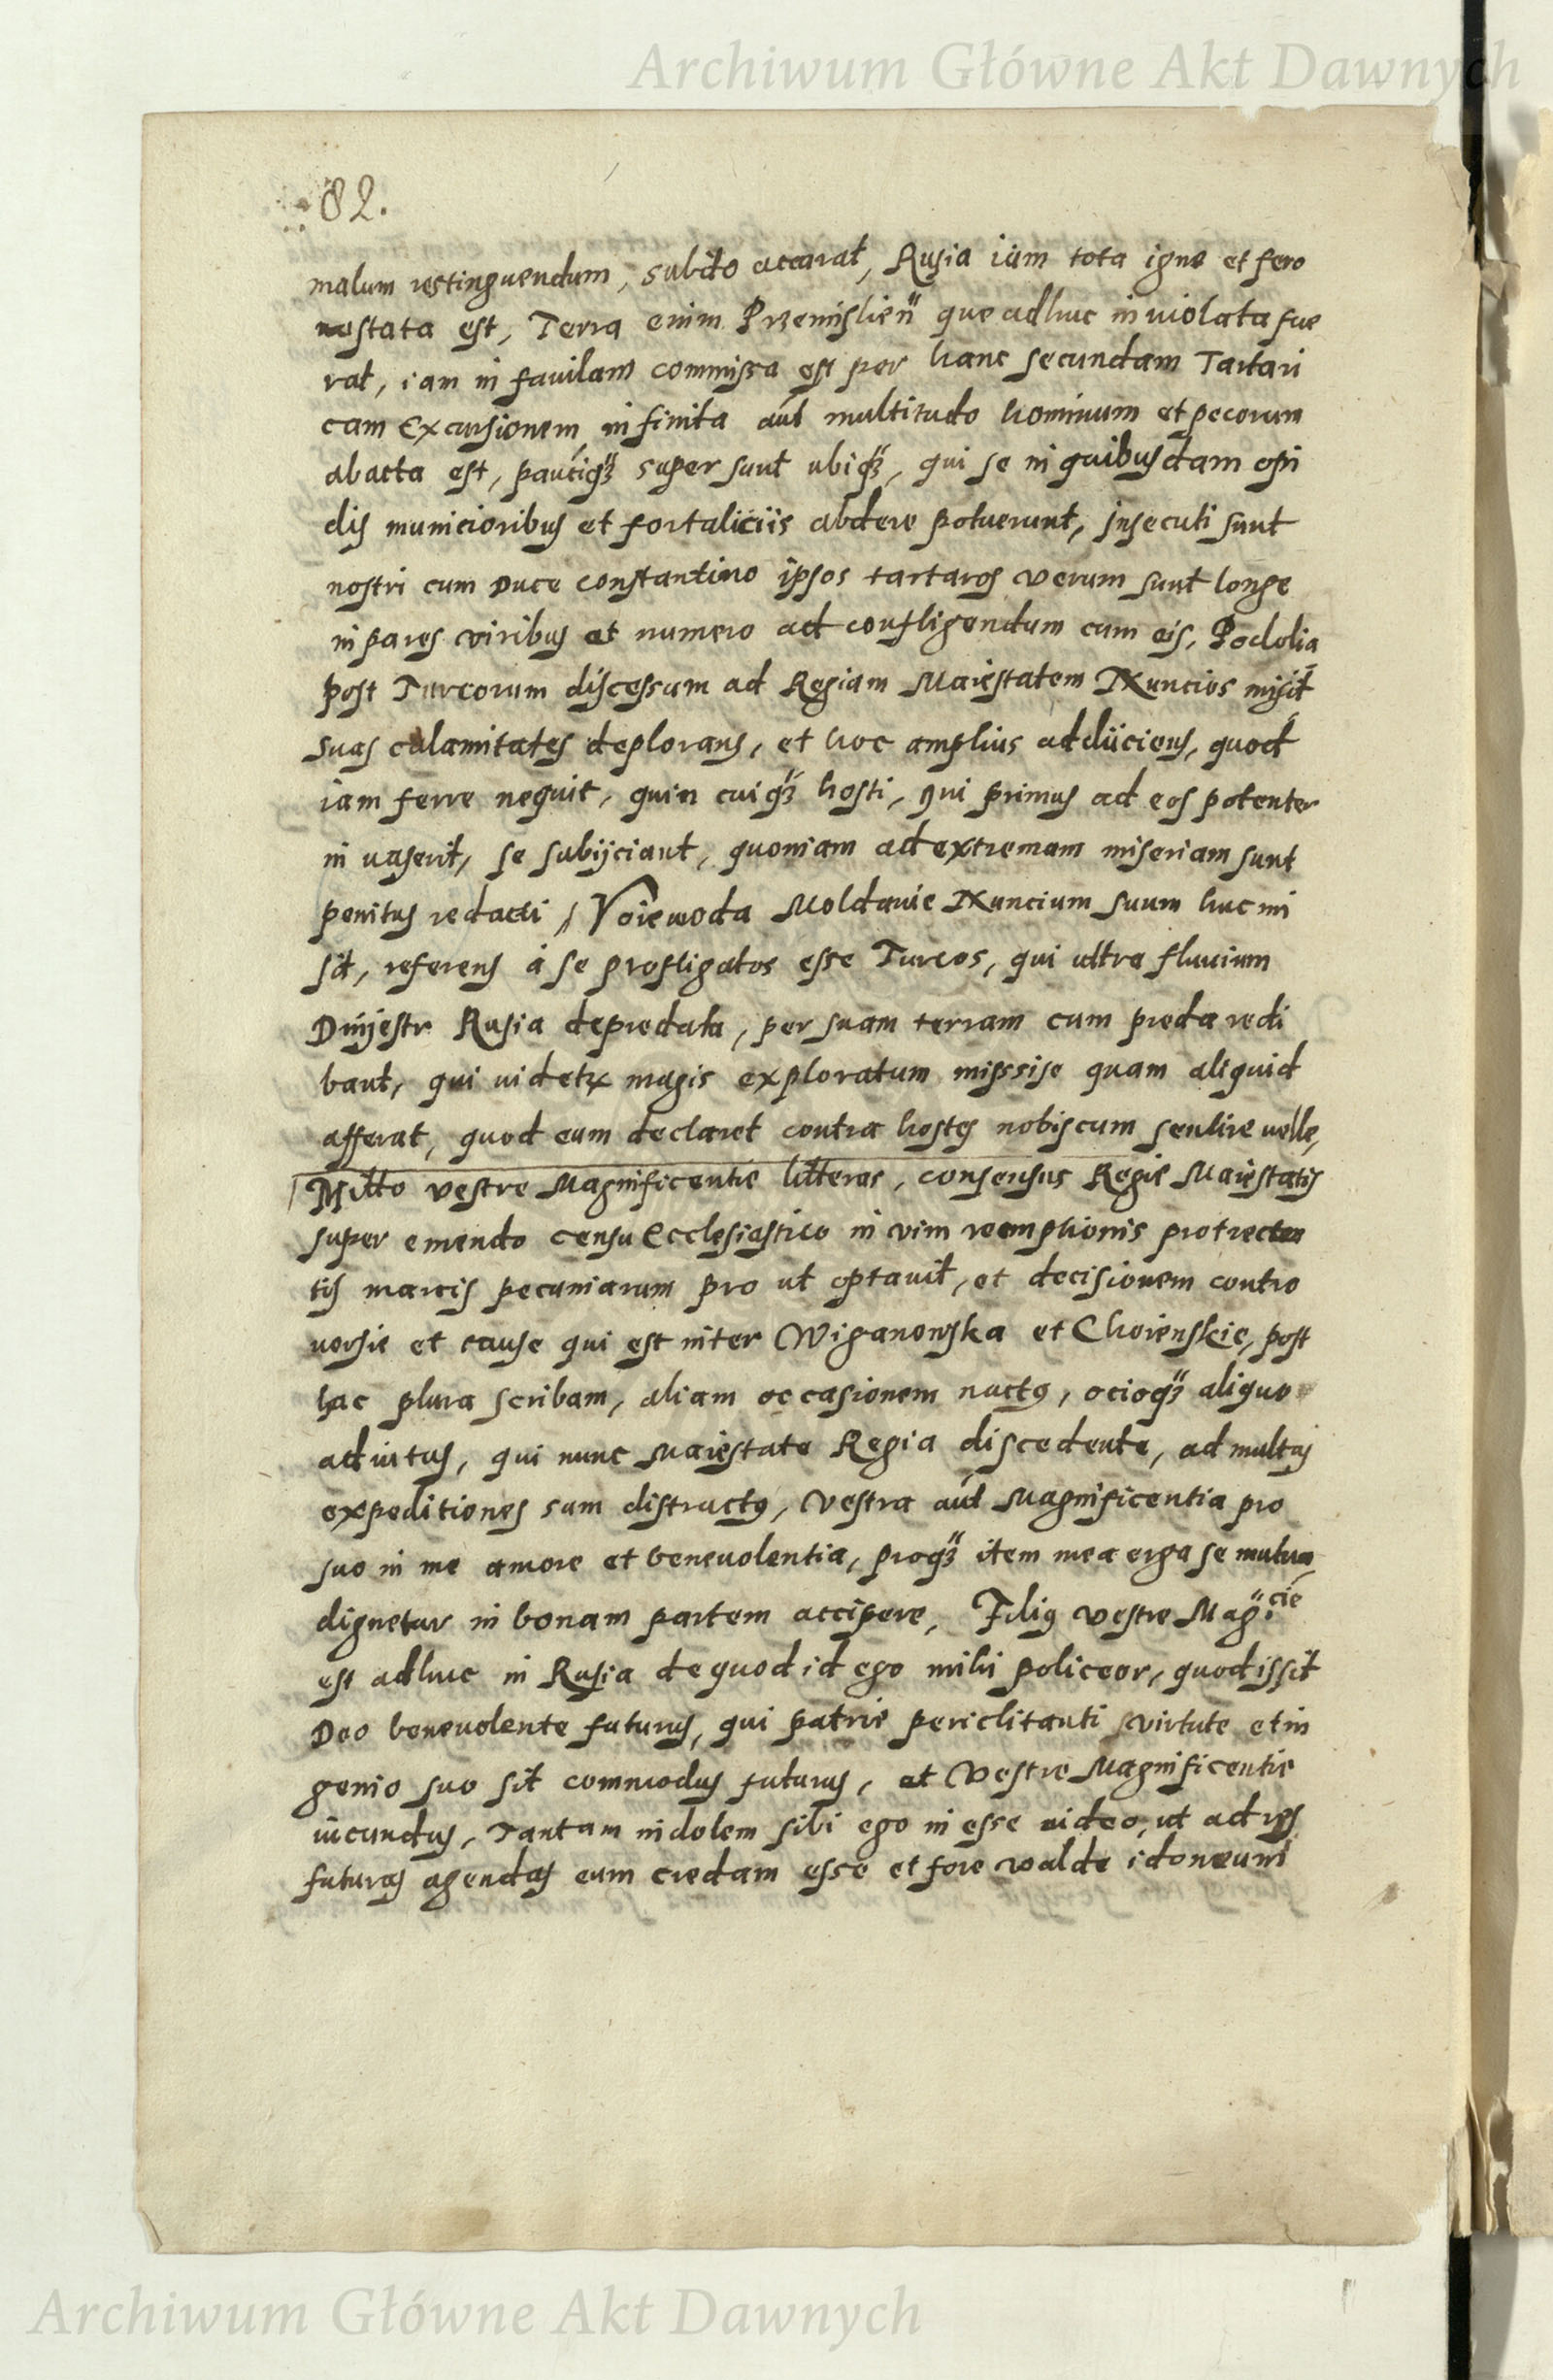 Archiwum Główne Akt Dawnych
82.
malum restinguendum, subito accarat, Rusia iam tota igne et fero
uastata est, Terra enim Przemislien̄ que adhuc inuiolata fue
rat, iam in fauilam commissa est per hanc secundam Tartari
cam Excursionem, infinita aut̄ multitudo hominum et pecorum
abacta est, pauciq₃ super sunt ubiq₃, qui se in quibusdam opi
dis municioribus et fortaliciis abdere potuerunt, insecuti sunt
nostri cum Duce Constantino ipsos tartaros verum sunt longe
inpares viribus et numero ad confligendum cum eis, Podolia
post Turcorum discessum ad Regiam Maiestatem Nuncios misit
suas calamitates deplorans, et hoc amplius adduciens, quod
iam ferre nequit, quin cuiq₃ hosti, qui primus ad eos potenter
in uaserit, se subijciant, quoniam ad extremam miseriam sunt
penitus redacti, Voiewoda Moldauie Nuncium suum huc mi
sit, referens á se profligatos esse Turcos, qui ultra fluuium
Dnijestr Rusia depredata, per suam terram cum preda redi
bant, qui uidetur magis exploratum misisse quam aliquid
afferat, quod eum declaret contra hostes nobiscum sentire uelle,
Mitto vestre Magnificentie litteras, consensus Regie Maiestatis
super emendo censu Ecclesiastico in vim reemptionis pro trecten
tis marcis pecuniarum pro ut optauit, et decisionem contro
uersie et cause qui est inter Wiganowska et Choienskie, post
hac plura scribam, aliam occasionem nactus, ocioq₃ aliquo
adiutus, qui nunc Maiestate Regia discedente, ad multas
expeditiones sum distractus, Vestra aut̄ Magnificentia pro
suo in me amore et beneuolentia, proq₃ item mea erga se mutua
dignetur in bonam partem accipere, Filius vestre Mag.cie
est adhuc in Rusia de quod id ego mihi policeor, quod is sit
Deo beneuolente futurus, qui patrie periclitanti virtute et in
genio suo sit commodus futurus, et Vestre Magnificentie
iucundus, Tantam indolem sibi ego in esse uideo, ut ad res
futuras agendas eum credam esse et fore valde idoneum
Archiwum Główne Akt Dawnych